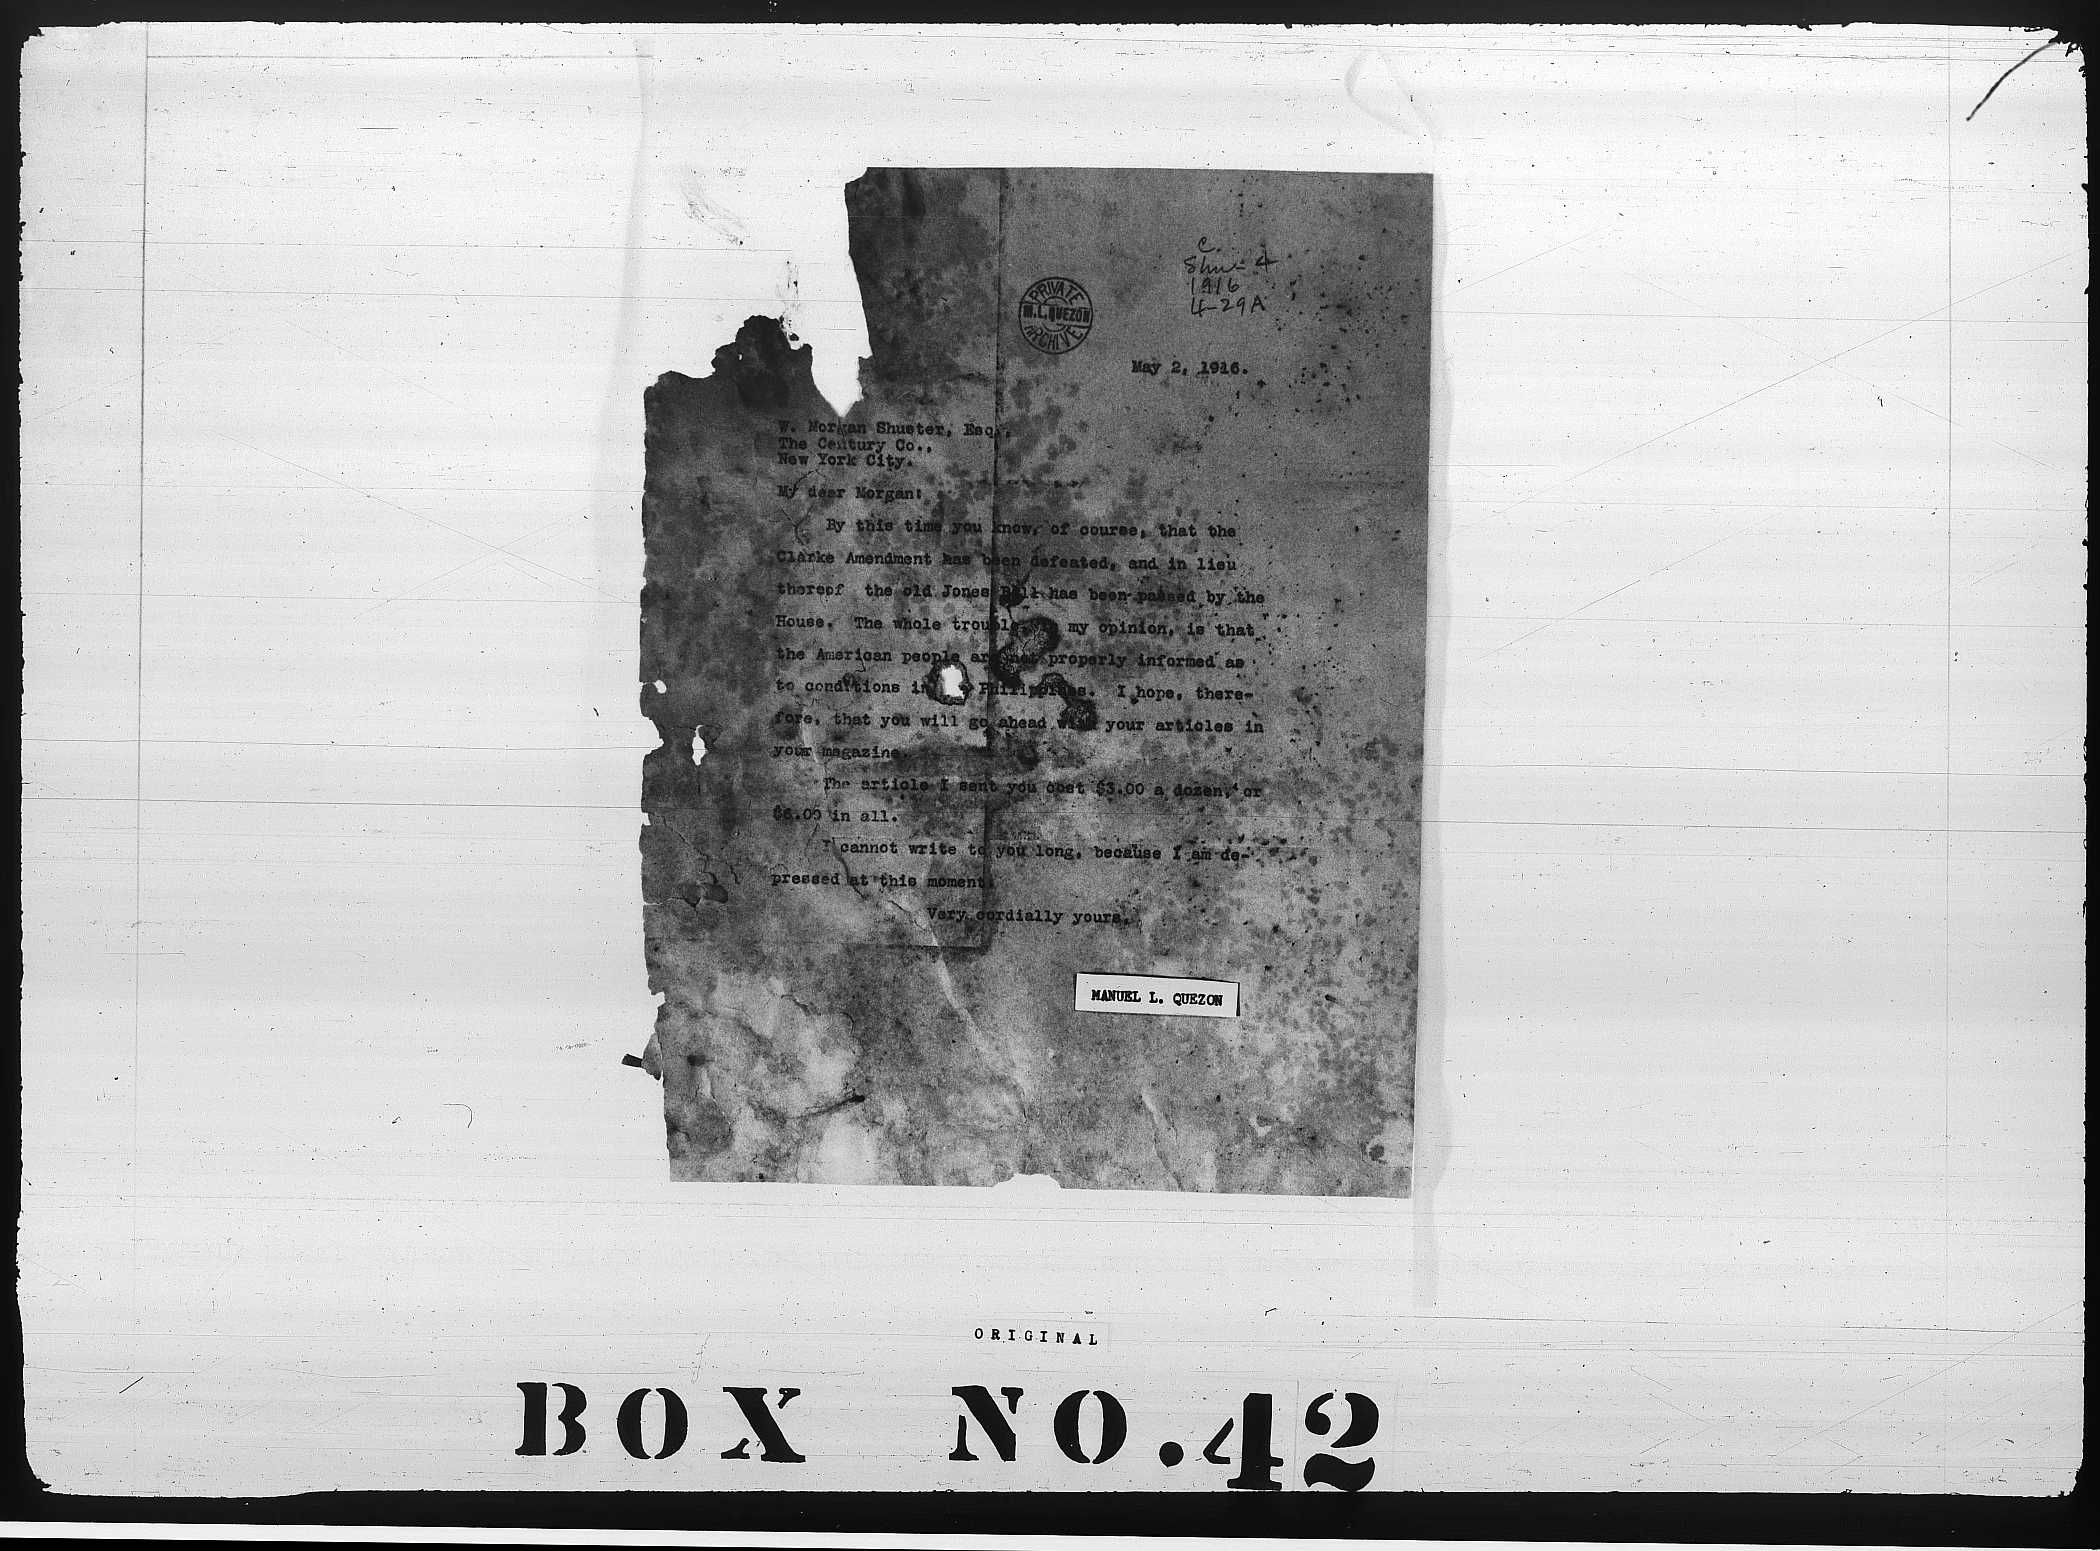 C.
1916
4-29A
PRIVATE
M.L.QUEZON
ARCHIVE
May 2, 1916.
W. Morgan Shuster, Esq.,
The Century Co.,
New York City.
My dear Morgan:
By this time you know, of course, that bhe
Clarke Amendment has been defeated, and in lieu
thereof the old Jones Bill has been passed by the
House. The whole trouble, my opinion, is that
the American people are not properly informed as
to conditions in Philippines. I hope, there-
fore, that you will go ahead with your articles in
your magazine.
The article I sent you cost $3.00 a dozen, or
$6.00 in all.
I cannot write to you long, because I am de-
pressed at this moment.
Very cordially yours,
MANUEL L. QUEZON
ORIGINAL
BOX NO.42